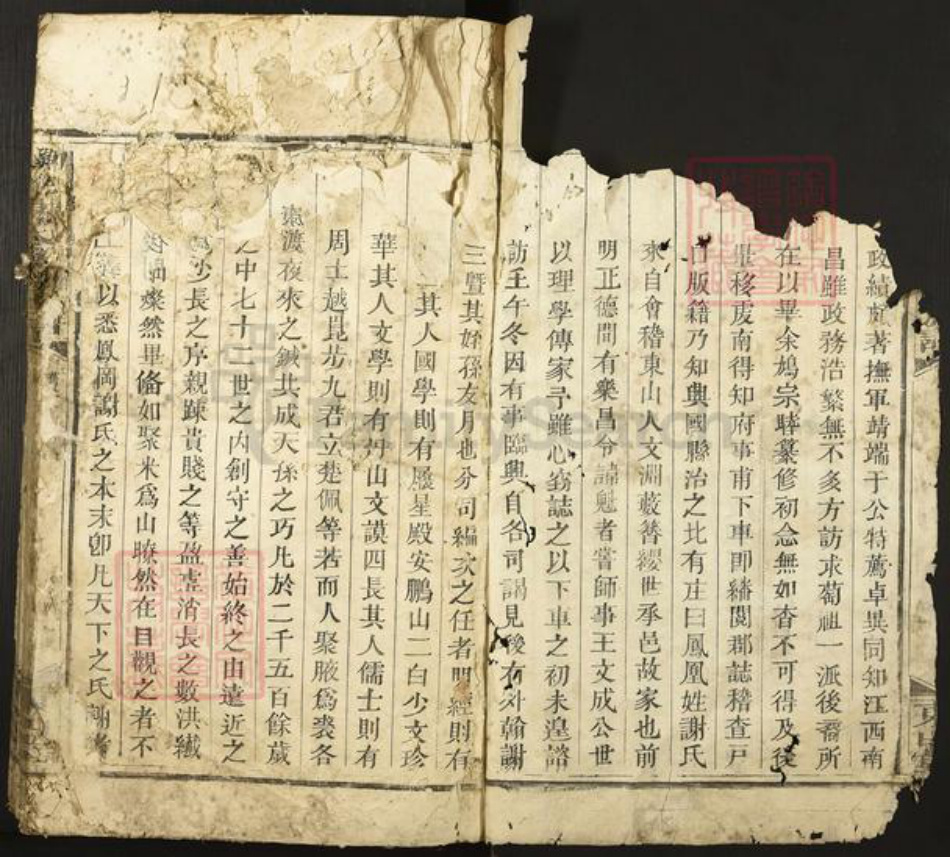 政績頗著撫軍靖端于公特薦卓異同知江西南
昌雖政務浩繁無不多方訪求蔔祖一派後裔所
在以畢余鳩宗聯纂修初念無如杳不可得及後
移虔南得知府事甫下車即繙閱郡誌稽查戶
口版籍乃知興國縣治之北有庄曰鳳凰姓謝氏
來自會稽東山人文淵藪簪纓世承邑故家也前
明正德間有樂昌令諱魁者嘗師事王文成公世
以理學傳家予雖心竊誌之以下車之初未遑諮
訪壬午冬因有事臨興自各司謁見後有外翰謝
三暨其姪孫友月也分司編次之任者明經則有
其人國學則有殿星殿安鵬山二白少文珍
華其人文學則有丹山文謨四長其人儒士則有
周士越崑步九君立楚佩等若而人聚腋爲裘各
東渡夜來之鍼共成天孫之巧凡於二千五百餘歲
之中七十二世之內創守之善始終之由遠近之
少長之序親疎貴賤之等盈虛消長之數洪纖
燦然畢備如聚米爲山暸然在目觀之者不
以悉鳳岡謝氏之本末卽凡天下之氏